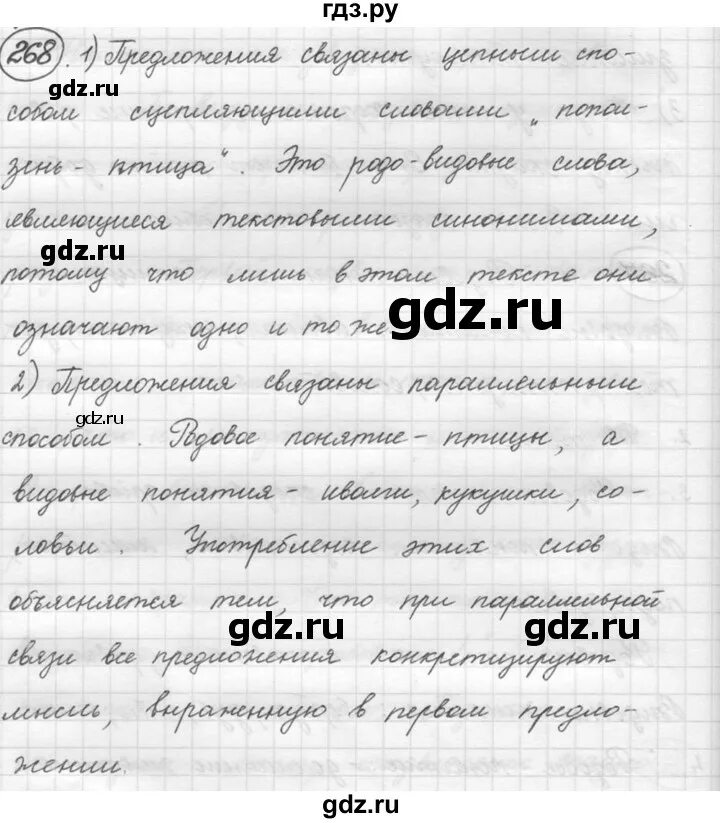 гдз.ру
268. 1) Предложения связаны цепным спо-
собом сцепляющими словами „попол-
зень - птица“. Это родо-видовые слова,
являющиеся текстовыми синонимами,
gdz.ru
потому что лишь в этом тексте они
gdz.ru
означают одно и то же
2) Предложения связаны параллельным
gdz.ru
способом. Родовое понятие - птицы, а
видовые понятия - иволги, кукушки, со-
ловьи. Употребление этих слов
объясняется тем, что при параллельной
gdz.ru gdz.ru
связи все предложения конкретизируют
мысль, выраженную в первом предло-
жении.
gdz.ru